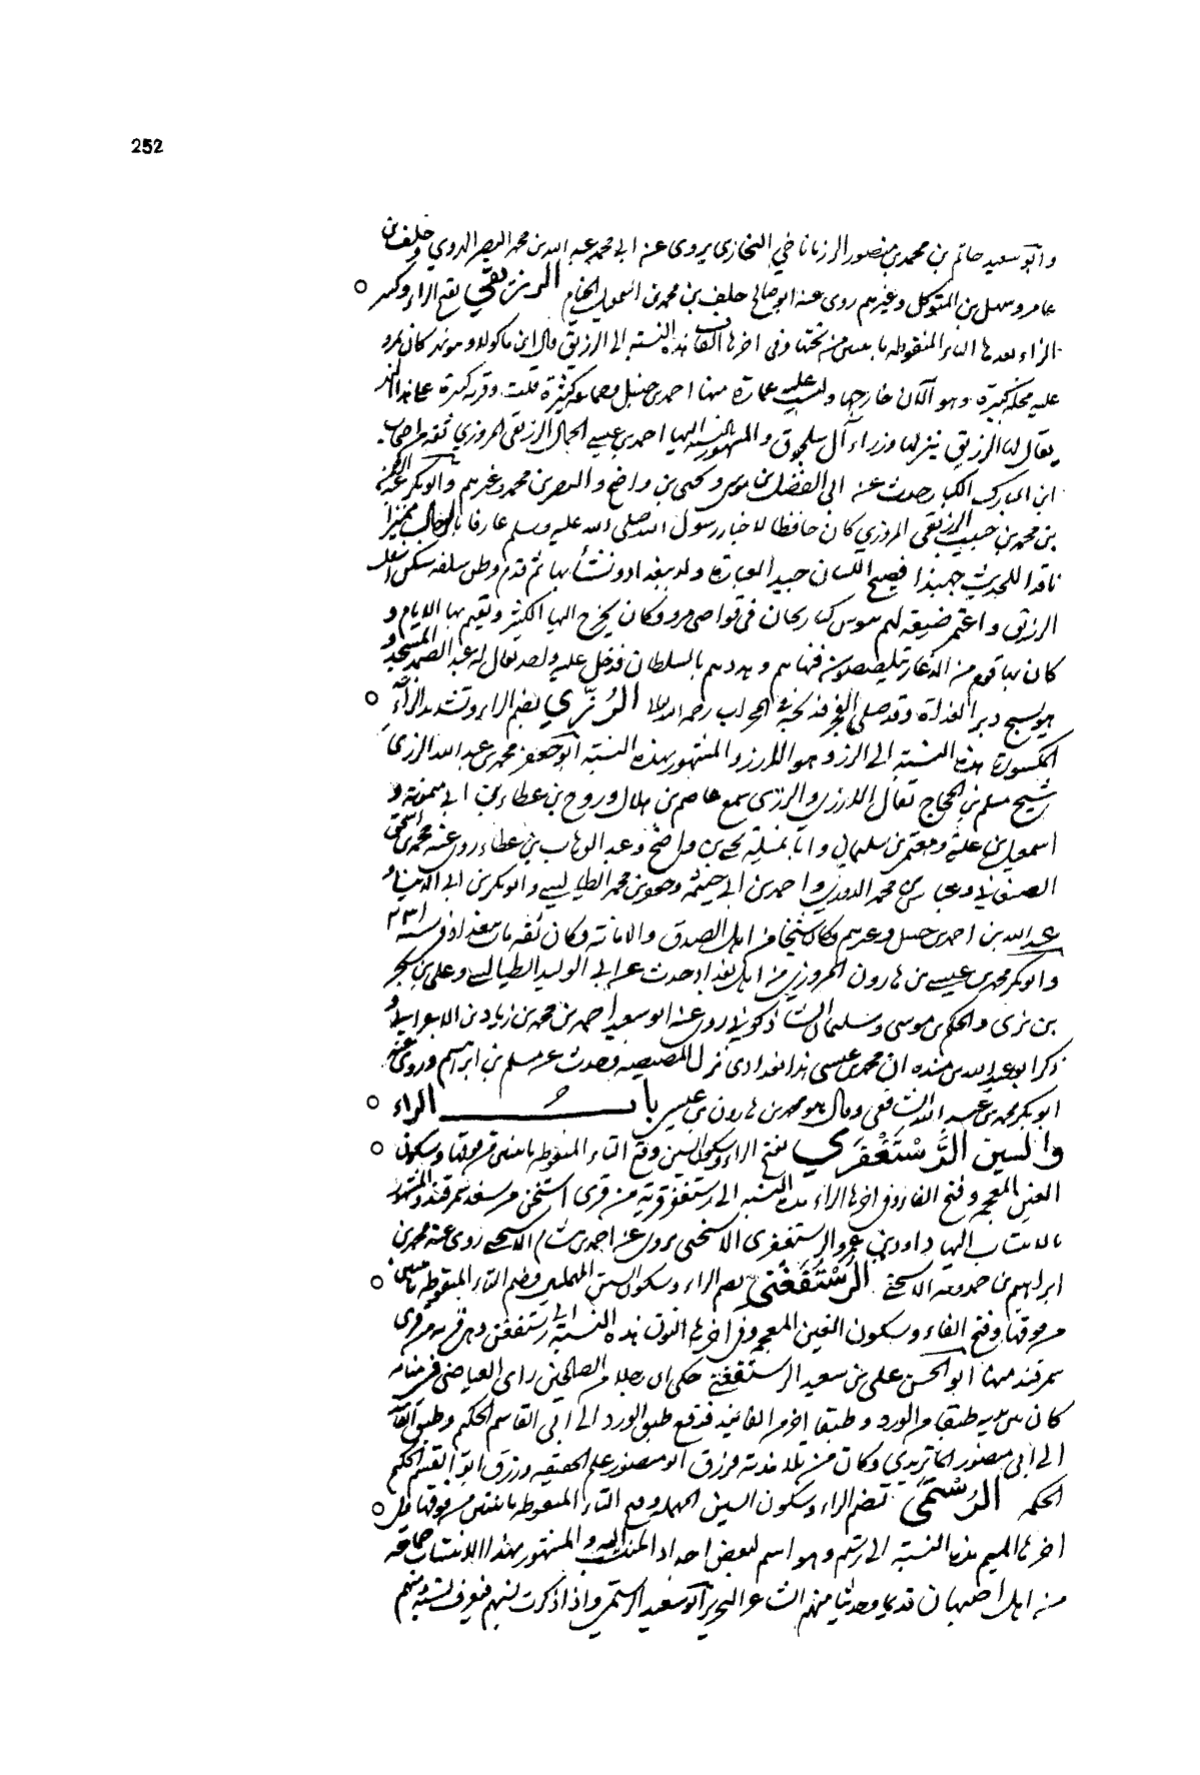 252
وابو سعيد حاتم بن محمد بن منصور الرزماناخي البخاري يروى عن ابى محمد عبد الله بن محمد الهروي وخلف بن
عامر وسهل بن المتوكل وغيرهم روى عنه ابو صالح خلف بن محمد بن اسمعيل الخيام الرزيقي بفتح الراء وكسر
الزاء بعدها الياء المنقوطه باثنتين من تحتها وفى اخرها القاف هذه النسبه الى الرزيق قال ابن ماكولا وهو نهر كان بمرو
عليه محله كبيرة وهو الآن خارجها وليست عليه عمارة منها احمد بن حنبل وجماعه كثيرة قلت وقريه كبيرة على هذا النهر
يقال لها الرزيق نزلها وزراء آل سلجوق والمشهور بالنسبه اليها احمد بن عيسى الجمال الرزيقى المروزي ثقه من اصحاب
ابن المبارك الكبار حدث عن الفضل بن موسى ويحيى بن واضح والنضر بن محمد وغيرهم وابو بكر
بن محمد بن حبيب الرزيقى المروزي كان حافظا لاخبار رسول الله صلى الله عليه وسلم عارفا بالرجال مميزا
ناقدا للحديث جهبذا فصيح اللسان جيد العبارة ولد ببغداد ونشأ بها ثم قدم وطن سلفه سكن اسفل
الرزيق واعتمر ضيعه لهم كان فى اقواصى مرو وكان يخرج اليها الكثير ويقيم بها الايام و
كان بها قوم من الذعار يتلصصون فنهاهم وهددهم بالسلطان فدخل عليه عبد الصمد المسجد و
هو يسبح دبر الغداة وقد صلى الفجر فذبحه فى المحراب رحمه الله الرزي بضم الراء وتشديد الزاء
المكسورة هذه النسبه الى الرز وهو الارز والمشهور بهذه النسبه ابو جعفر محمد بن عبد الله الرزى
شيخ مسلم بن الحجاج يقال له الارزى والرزى سمع عاصم بن هلال وروح بن عطاء بن ابى ميمونه و
اسمعيل بن عليه ومعتمر بن سليمان وابا تميله يحيى بن واضح وعبد الوهاب بن عطاء روى عنه محمد بن اسحق
الصغانى وعباس بن محمد الدوري واحمد بن ابى خيثمه وجعفر بن محمد الطيالسى وابو بكر بن ابى الدنيا و
عبد الله بن احمد بن حنبل وغيرهم وكان شيخا من اهل الصدق والامانه وكان ثقه مات ببغداد فى سنه ٢٣١
وابو بكر محمد بن عيسى بن هارون المروزي من اهل بغداد حدث عن ابى الوليد الطيالسى وعلى بن بحر
بن برى والحكم بن موسى وسليمان الشاذكونى روى عنه ابو سعيد احمد بن محمد بن زياد بن الاعرابى و
ذكر ابو عبد الله بن منده ان محمد بن عيسى هذا بغدادى نزل المصيصه وحدث عن مسلم بن ابراهيم وروى عنه
ابو بكر محمد بن عبد الله الشافعى وقال هو محمد بن هارون بن عيسى باب الراء
والسين الرَّسْتَغْفَري بفتح الراء وسكون السين وفتح التاء المنقوطه باثنتين من فوقها وسكون
الغين المعجمه وفتح الفاء وفى اخرها الراء هذه النسبه الى رستغفر قريه من قرى اشتيخن من سغد سمرقند والمشهور
بالانتساب اليها داود بن عمرو الرستغفرى الاشتيخنى يروى عن احمد بن هشام الاشتيخنى روى عنه محمد بن
ابراهيم بن حمدويه الاشتيخنى الرُسْتُفَغْنى بضم الراء وسكون السين المهمله وضم التاء المنقوطه باثنتين
من فوقها وفتح الفاء وسكون الغين المعجمه وفى اخرها النون هذه النسبه الى رستفغن وهى قريه من قرى
سمرقند منها ابو الحسن على بن سعيد الرستفغنى حكى ان رجلا من الصالحين راى العياضى فى منامه
كان بين يديه طبقا من الورد وطبقا اخر من الفانيذ فدفع طبق الورد الى ابى القاسم الحكيم وطبق الفانيذ
الى ابى منصور الماتريدي وكان من تلامذته فرزق ابو منصور علم الحقيقه ورزق ابو القسم الحكيم
الحكمه الرُسْتَمَى بضم الراء وسكون السين المهمله وفتح التاء المنقوطه باثنتين من فوقها وفى
اخرها الميم هذه النسبه الى رستم وهو اسم لبعض اجداد المنتسب اليه والمشهور بهذا الانتساب جماعه
من اهل اصبهان قديما وحديثا منهم الشاعر النحرير ابو سعيد الرستمى واذا ذكرت لبنهم فنعرف نسبته ومنهم